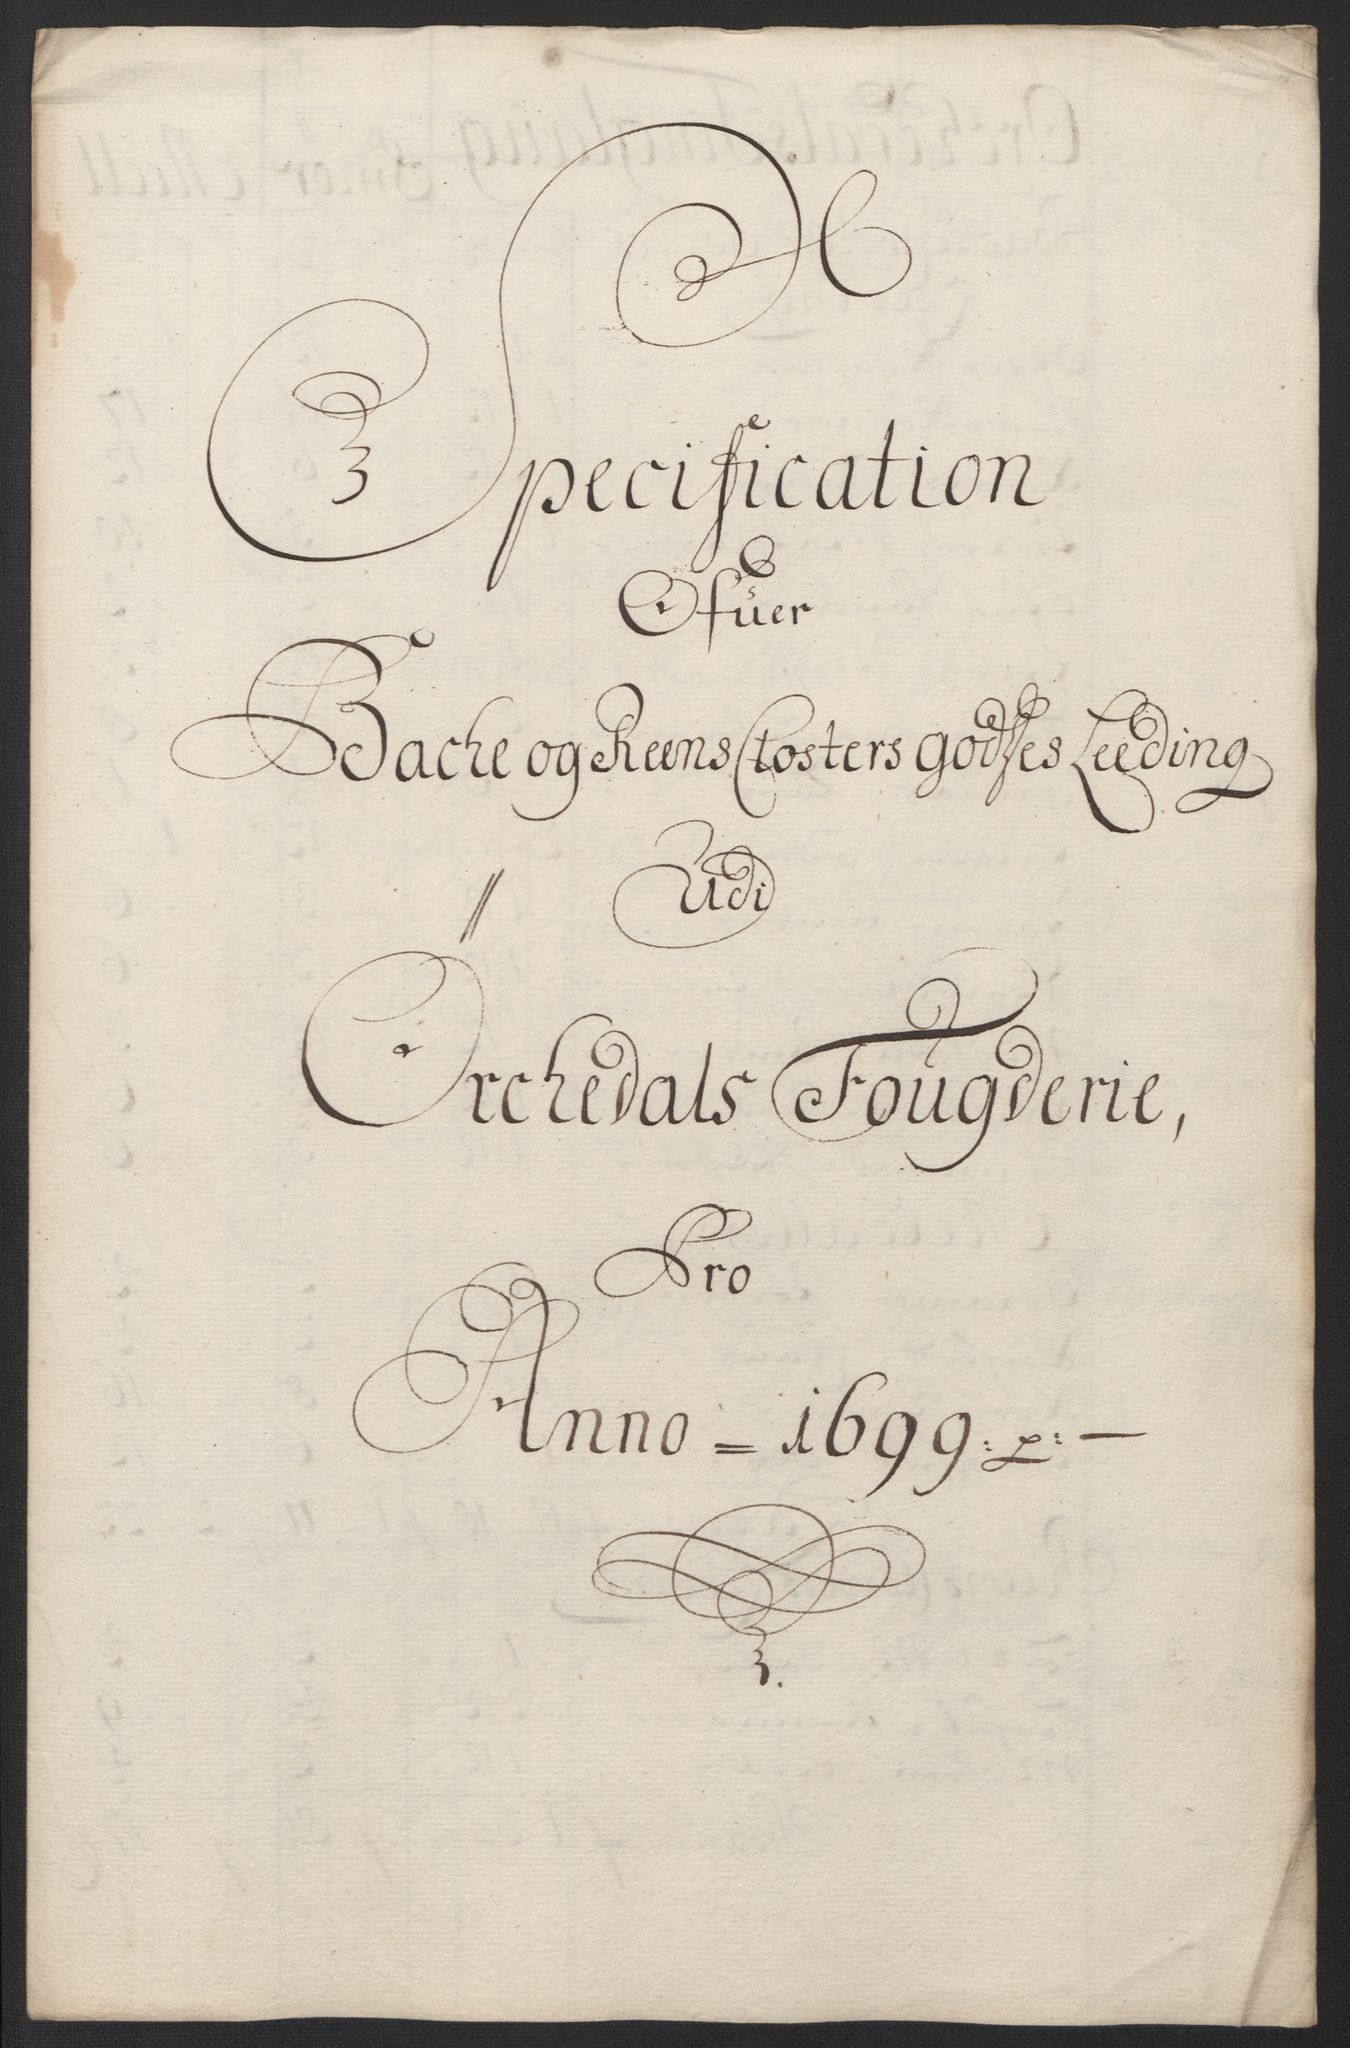 Specification
Ofuer
Bache og Reens Closters godses Leeding
Udi
Orchedals Fougderie,
Pro
Anno = 1699: